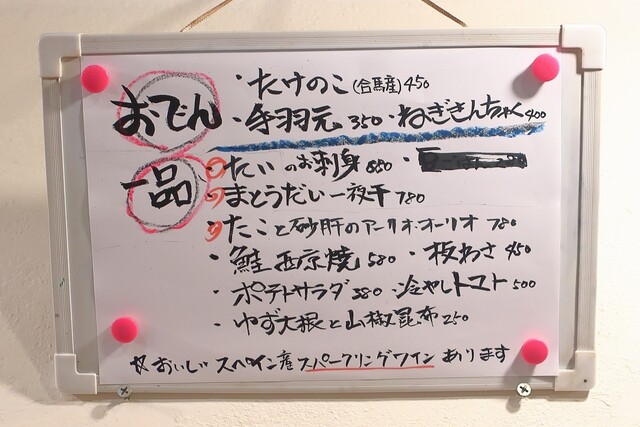 おでん
・たけのこ(合馬産)450
・手羽元 350・ねぎきんちゃく400
一品
たいのお刺身 880 ・
まとうだい一夜干 780
たこと砂肝のアーリオ・オーリオ 780
・鮭西京焼 580 ・板わさ 450
・ポテトサラダ 380 ・冷やしトマト 500
・ゆず大根と山椒昆布 250
☆おいしいスペイン産スパークリングワインあります